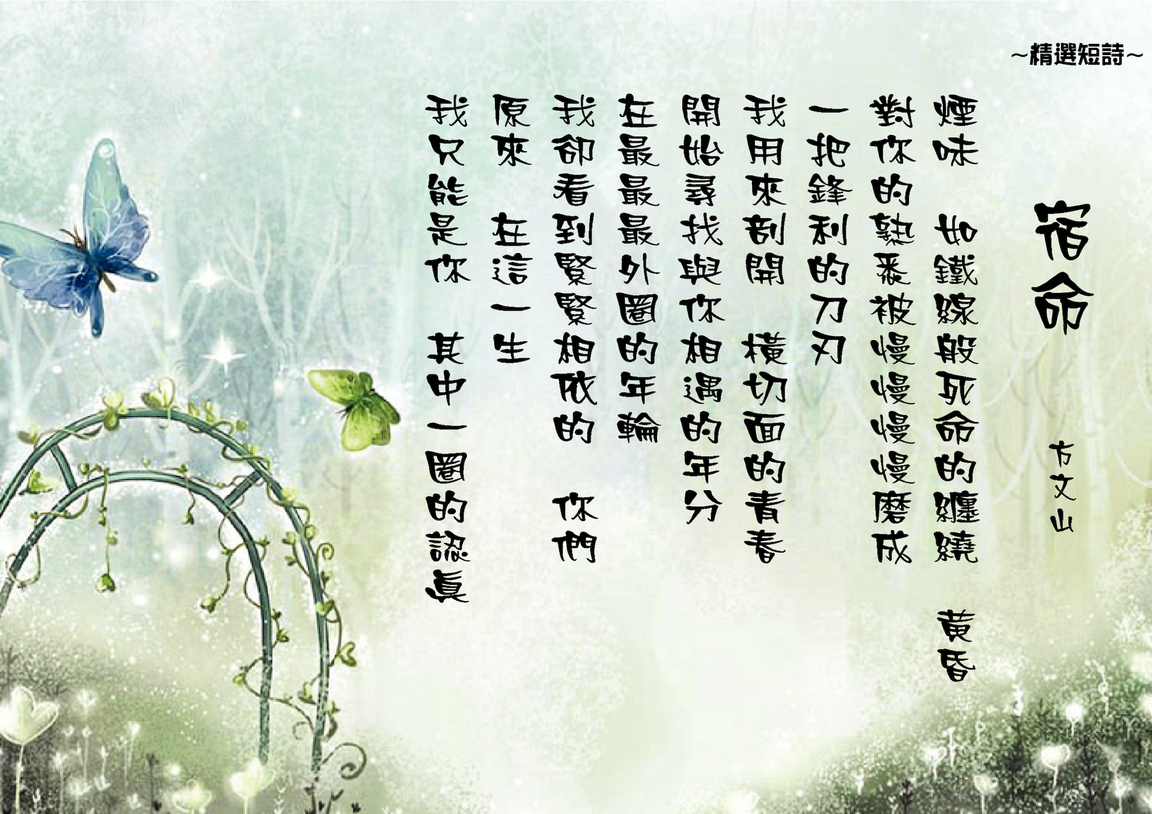 ~精選短詩~
宿命 方文山
煙味 如鐵線般死命的纏繞 黃昏
對你的熟悉被慢慢慢慢磨成
一把鋒利的刀刃
我用來剖開 橫切面的青春
開始尋找與你相遇的年分
在最最最外圈的年輪
我卻看到緊緊相依的 你們
原來 在這一生
我只能是你 其中一圈的認真